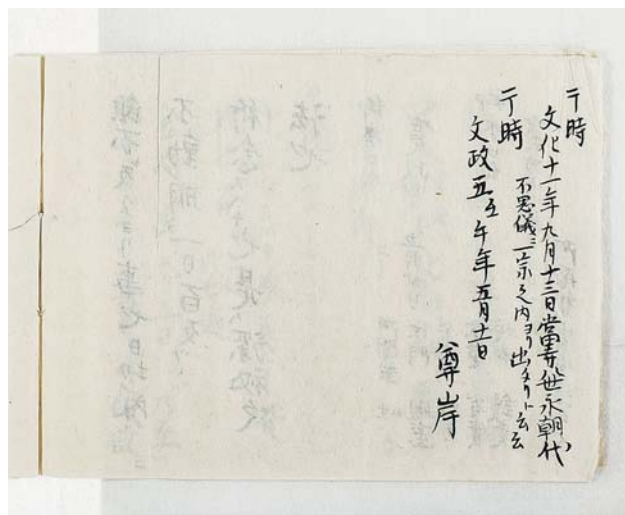 于時
文化十一年九月十三日當寺世永朝代
不思儀ニ宗之内ヨリ出タリト云云
于時
文政五壬午年五月十一日
尊岸